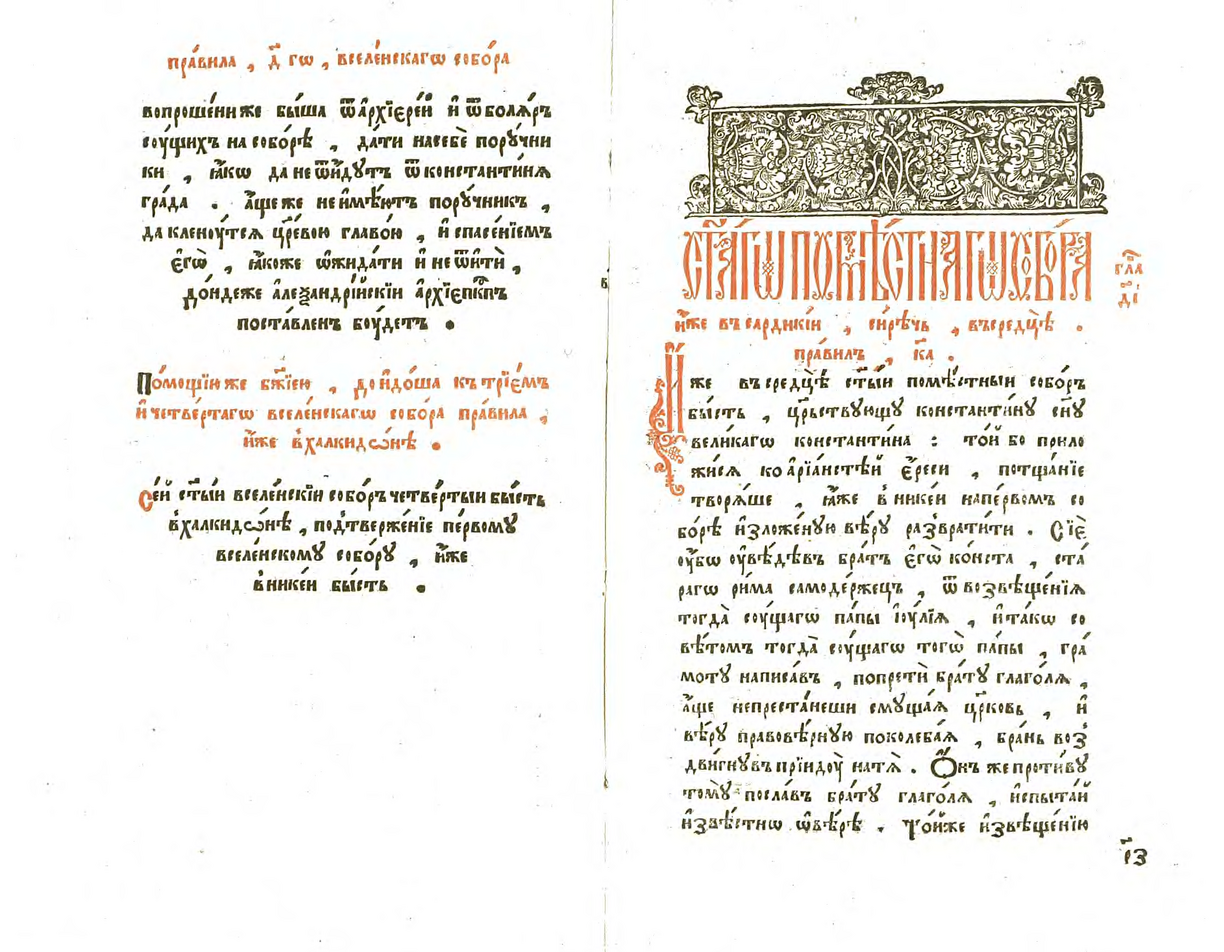 пра́вила , д҃ гѡ , вселе́нскагѡ собо́ра
вопроше́ни же бы́ша ѿ а҆рхїере́й и҆ ѿ боля́ръ
сꙋ́щихъ на собо́рѣ , да́ти на себѐ порꙋ́чни
ки , ꙗ҆́кѡ да не ѿи҆́дꙋтъ ѿ константи́ня
гра́да . А҆́ще же не и҆мѣ́ютъ порꙋ́чникъ ,
да кленꙋ́тся цр҃е́вою главо́ю , и҆ спасе́нїемъ
є҆гѡ̀ , ꙗ҆́коже ѡ҆жида́ти и҆ не ѿи҆тѝ ,
до́ндеже а҆леѯандрі́йскїи а҆рхїеп҃кпъ
поста́вленъ бꙋ́детъ .
По́мощїю же бж҃їею , до и҆до́ша къ трїе́мъ
и҆ четве́ртагѡ вселе́нскагѡ собо́ра пра́вила ,
и҆́же в̾ халкидо́нѣ .
Се́й ст҃ы́и вселе́нскїи собо́ръ четве́ртыи бы́сть
в̾ халкидо́нѣ , под̾тверже́нїе пе́рвомꙋ
вселе́нскомꙋ собо́рꙋ , и҆́же
в̾ нике́и бы́сть .
СТ҃А́ГѠ ПОМѢ́СТНАГѠ СОБО́РА
и҆́же въ сарди́кїи , си́рѣчь , въ средцѣ̀ .
пра́вилъ , к҃а .
гла
д҃і
И҆́же въ средцѣ̀ ст҃ы́и помѣ́стныи собо́ръ
бы́сть , цр҃ьствꙋющꙋ константи́нꙋ сн҃ꙋ
вели́кагѡ константи́на : то́й бо прило
жи́ся ко а҆рїа́нстѣй є҆́реси , потща́нїе
творя́ше , ꙗ҆́же в̾ нике́и на пе́рвомъ со
бо́рѣ и҆зложе́нꙋю вѣ́рꙋ раз̾врати́ти . Сїѐ
ᲂу҆́бѡ ᲂу҆вѣ́дѣвъ бра́тъ є҆гѡ̀ ко́нста , ста́
рагѡ ри́ма самоде́ржецъ , ѿ воз̾вѣще́нїя
тогда̀ сꙋ́щагѡ па́пы і҆ꙋ́лїя , и҆ та́кѡ со
вѣ́томъ тогда̀ сꙋ́щагѡ тогѡ̀ па́пы , гра́
мотꙋ написа́въ , попретѝ бра́тꙋ глаго́ля ,
а҆́ще не преста́неши смꙋща́я цр҃ковь , и҆
вѣ́рꙋ правовѣ́рнꙋю поколеба́я , бра́нь воз̾
дви́гнꙋвъ прїидꙋ̀ на тя̀ . Ѻ҆́нъ же проти́вꙋ
томꙋ̀ посла́въ бра́тꙋ глаго́ля , и҆спыта́й
и҆звѣ́стнѡ ѡ҆ вѣ́рѣ . То́йже и҆звѣще́нїю
р҃з